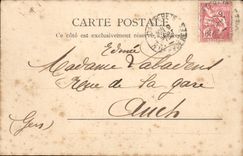 CARTE POSTALE
Ce côté est exclusivement réservé à l'adresse
Edmée
Madame Labadens
Rue de la gare
Auch
Gers